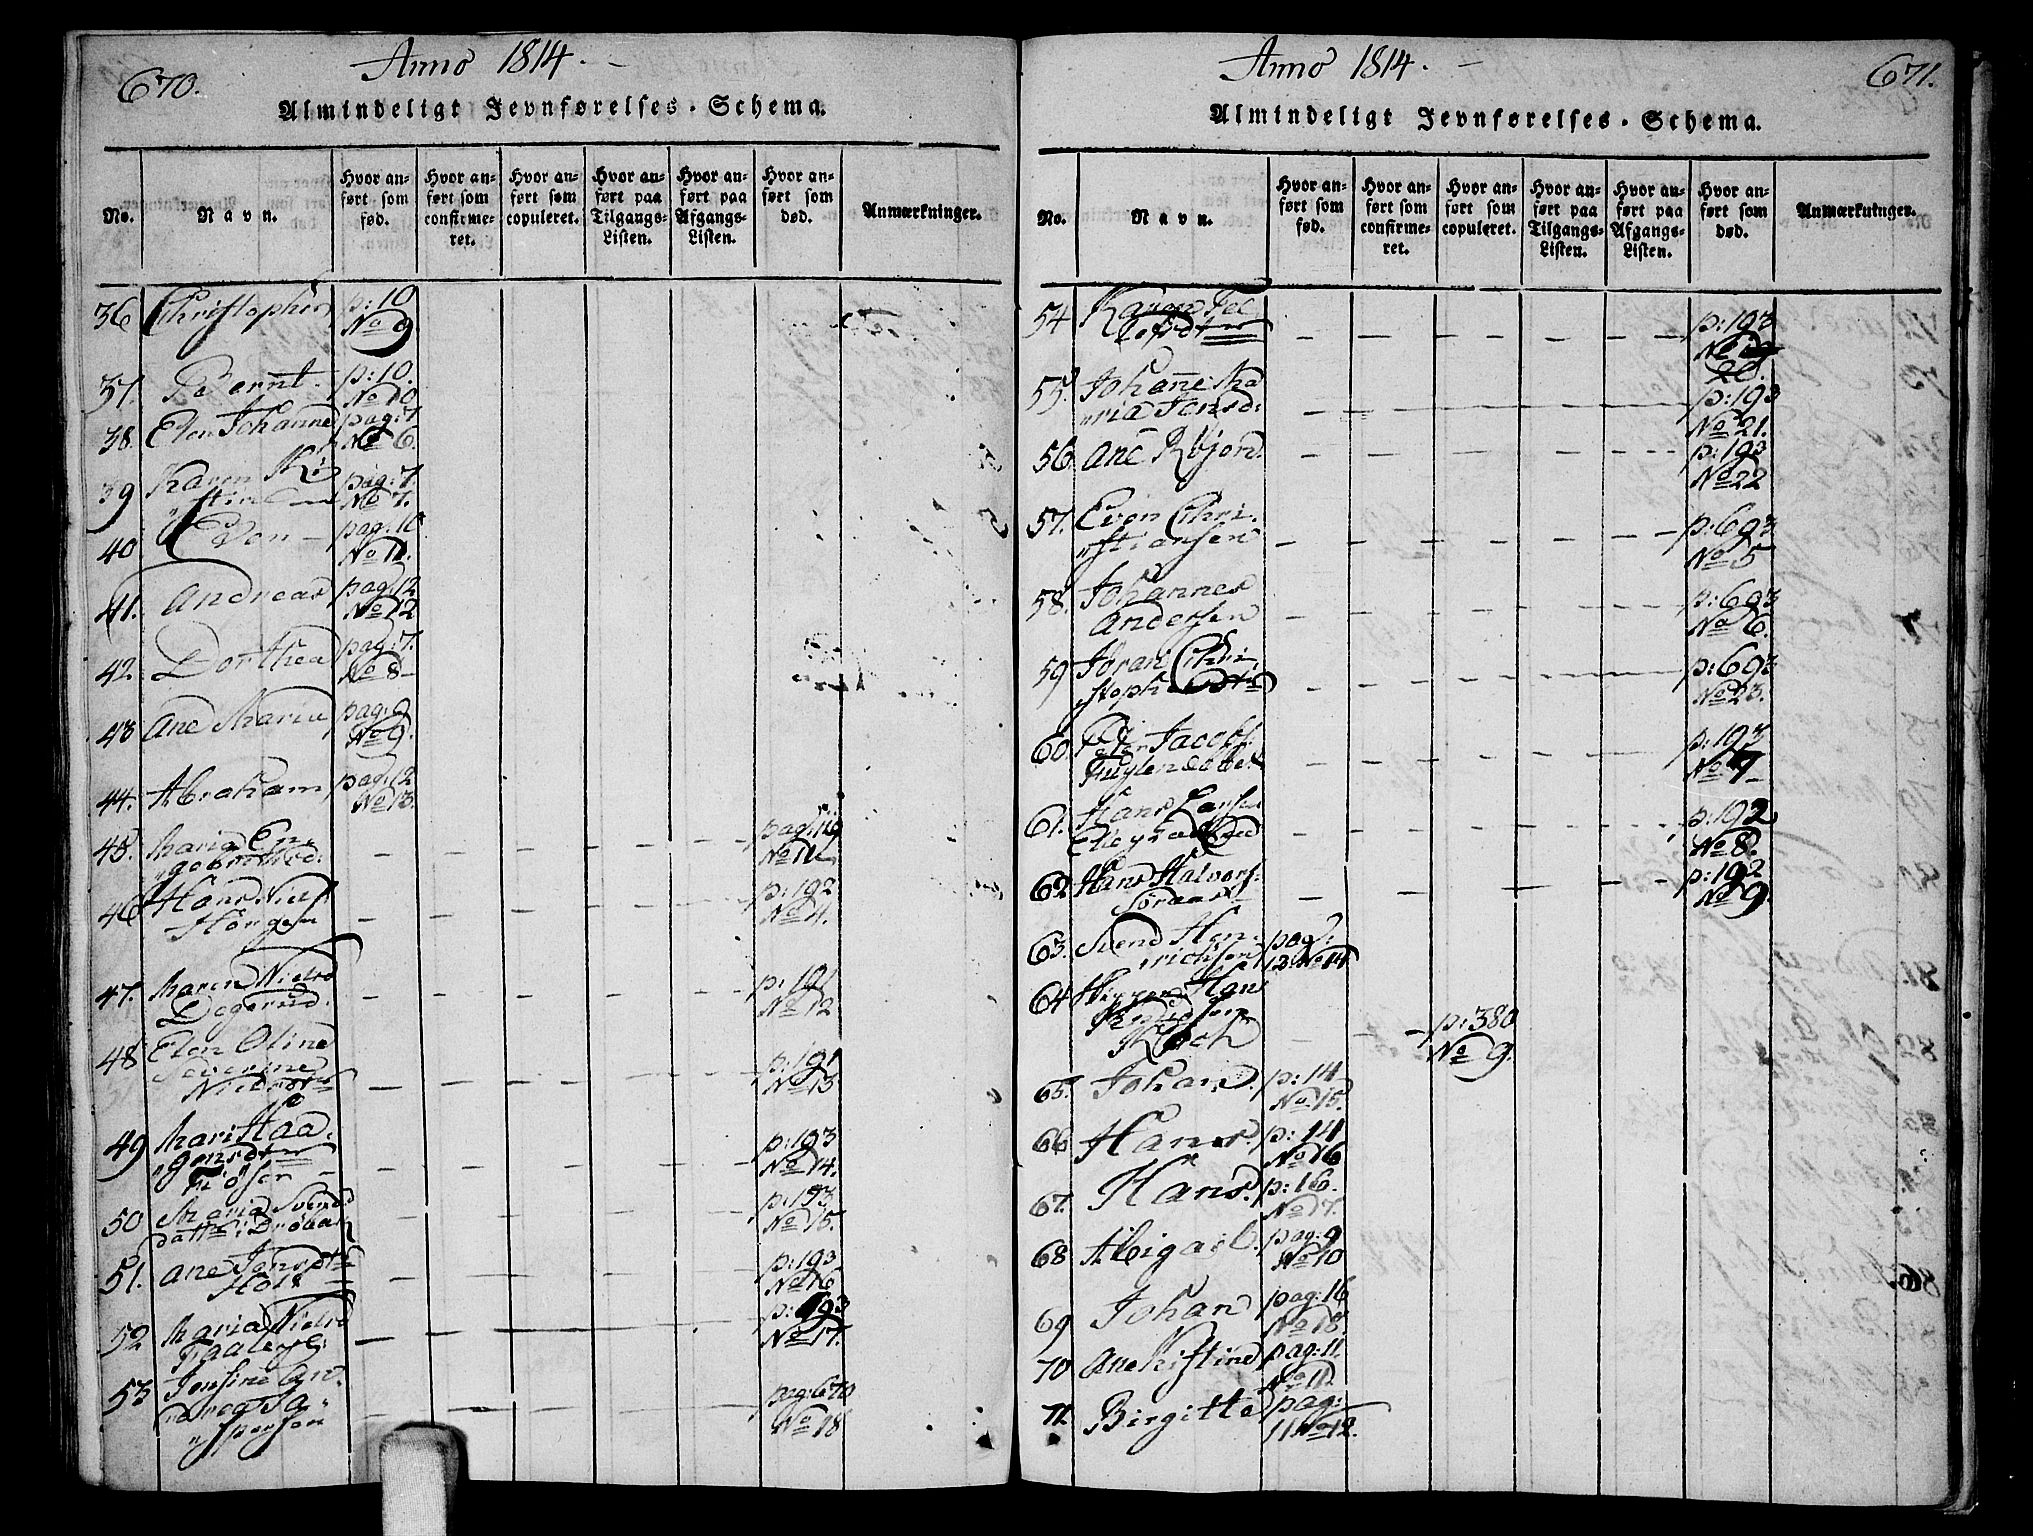 670.
Anno 1814.
Almindeligt Jevnførelses-Schema.
No.
Navn.
Hvor an-
ført som
fød.
Hvor an-
ført som
confirme-
ret.
Hvor an-
ført som
copuleret.
Hvor an-
ført paa
Tilgangs-
Listen.
Hvor an-
ført paa
Afgangs-
Listen.
Hvor an-
ført som
død.
Anmærkninger.
36 Christopher p: 10
No 9
37. Bernt p: 10.
No 10
38. Elen Johanne pag: 7
No 6.
39 Karen Ki pag: 7
"stin No 7.
40 Even pag: 10
No 11.
41. Andreas pag: 12
No 12
42. Dorthea pag: 7.
No 8
43 Ane Maria pag: 9
No 9.
44. Abraham pag: 12
No 13.
45. Maria En-
"gebretsd:
46 Hans Niels p: 192
No 4.
47. Maren Nielsd p: 191
Degerud. No 12
48 Elen Oline
Severine p: 191
Nielsdtr No 13
49 Mari Haa- p: 193
"gensdtr No 14.
50 Maria Svends p: 193
datter No 15.
51. Ane Jensdtr p: 193
Hols No 16
52 Maria Nielsd p: 193
No 17.
53 Jensine An- pag: 670
No 18
671.
Anno 1814.
Almindeligt Jevnførelses-Schema.
No.
Navn.
Hvor an-
ført som
fød.
Hvor an-
ført som
confirme-
ret.
Hvor an-
ført som
copuleret.
Hvor an-
ført paa
Tilgangs-
Listen.
Hvor an-
ført paa
Afgangs-
Listen.
Hvor an-
ført som
død.
Anmærkninger.
54 Karen Tel p: 193
lefsdtr No
20.
55. Johanne Ma p: 193
"ria Jensd: No 21.
56 Ane Röjord p: 193
No 22
57. Even Chri- p: 693
"stiansen No 5
58. Johannes p: 693
Andersen No 6.
59 Joran Chri p: 693
No 23.
60 Peter Jacobs. p: 193
No 7
61. Hans Larsen p: 192
No 8.
62 Hans Halvors. p: 192
No 9.
63. Svend Hen- pag:
"richsen 12. No 14
64 Hans
Koch p: 380
No 9.
65. Johan p: 14
No 15.
66 Hans. p: 14
No 16
67. Hans. p: 16.
No 17.
68 Abigael. pag: 9
No 10
69 Johan pag: 16
No 18.
70 Ane Kistine pag: 11.
No 11.
71. Birgitte pag:
11 No 12.